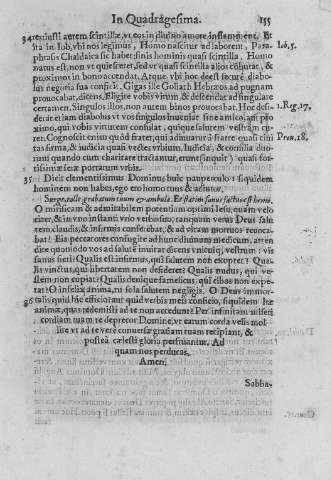 In Quadragesima. 155
Iob, 5.
sta in Iob, vbi nos legimus, Homo nascitur ad laborem, Para
phrasis Chaldaica sic habet: sinis hominis quasi scintilla. Homo
natus est, non vt quiescat, sed vt quasi scintilla alios
proximos in bono accendat. Atque vbi hoc deest
negotia sua conficit. Gigas ille Goliath Hebræos ad pugnam
prouocabat, dicens, Eligite vobis virum & descendat ad singulare
certamen. Singulos illos, non autem binos prouocabat. Hoc
1. Reg. 17,
derat etiam diabolus vt vos singulos inueniat sine amico, sine pro
ximo, qui vobis virtutem consulat, quique salutem vestram
ret. Cognoscit enim quòd frater, qui adiuuatur à fratre quasi ciui
Prou. 18.
tas firma, & iudicia quasi vectes vrbium. Iudicia, & consilia duo
rum quando cum charitate tractantur, erunt (inquit) quasi for
tissimæ seræ portarum vrbis.
35 Dicit clementissimus Dominus huic pauperculo: siquidem
hominem non habes, ego ero homo tuus & adiutor.
Surge, tolle grabatum tuum & ambula. Et statim sanus factus est homo.
O mirificam & admirabilem potentiam optimi Iesu, quàm velo
citer, & in vno instanti vno verbo suo,
tem claudis, & infirmis conferebat, & ad vitam mortuos reuoca-
bat? Eia peccatores confugite ad hunc diuinum medicum,
die quotidie vos ad salutē inuitat dicens vnicuiq; vestrum: vis
sanus fieri? Qualis est infirmus, qui salutem non exoptet? Qua-
lis vinctus, qui libertatem non desideret? Qualis nudus, qui ve-
stem non cupiat? Qualis denique famelicus, qui cibos non expe-
tat? O infelix anima, tu sola salutem negligis. O Deus immor-
36 talis quid hîc efficio tantùm verbis meis conficio, siquidem hæ
animæ, quas redemisti ad te non accedunt? Per infinitam miseri
cordiam tuam te deprecor Domine, vt earum corda velis mol-
lire vt ad te verè conuersæ gratiam tuam recipiant, &
postea cælesti gloria perfruantur. Ad
quam nos perducas,
Amen.
Sabba-